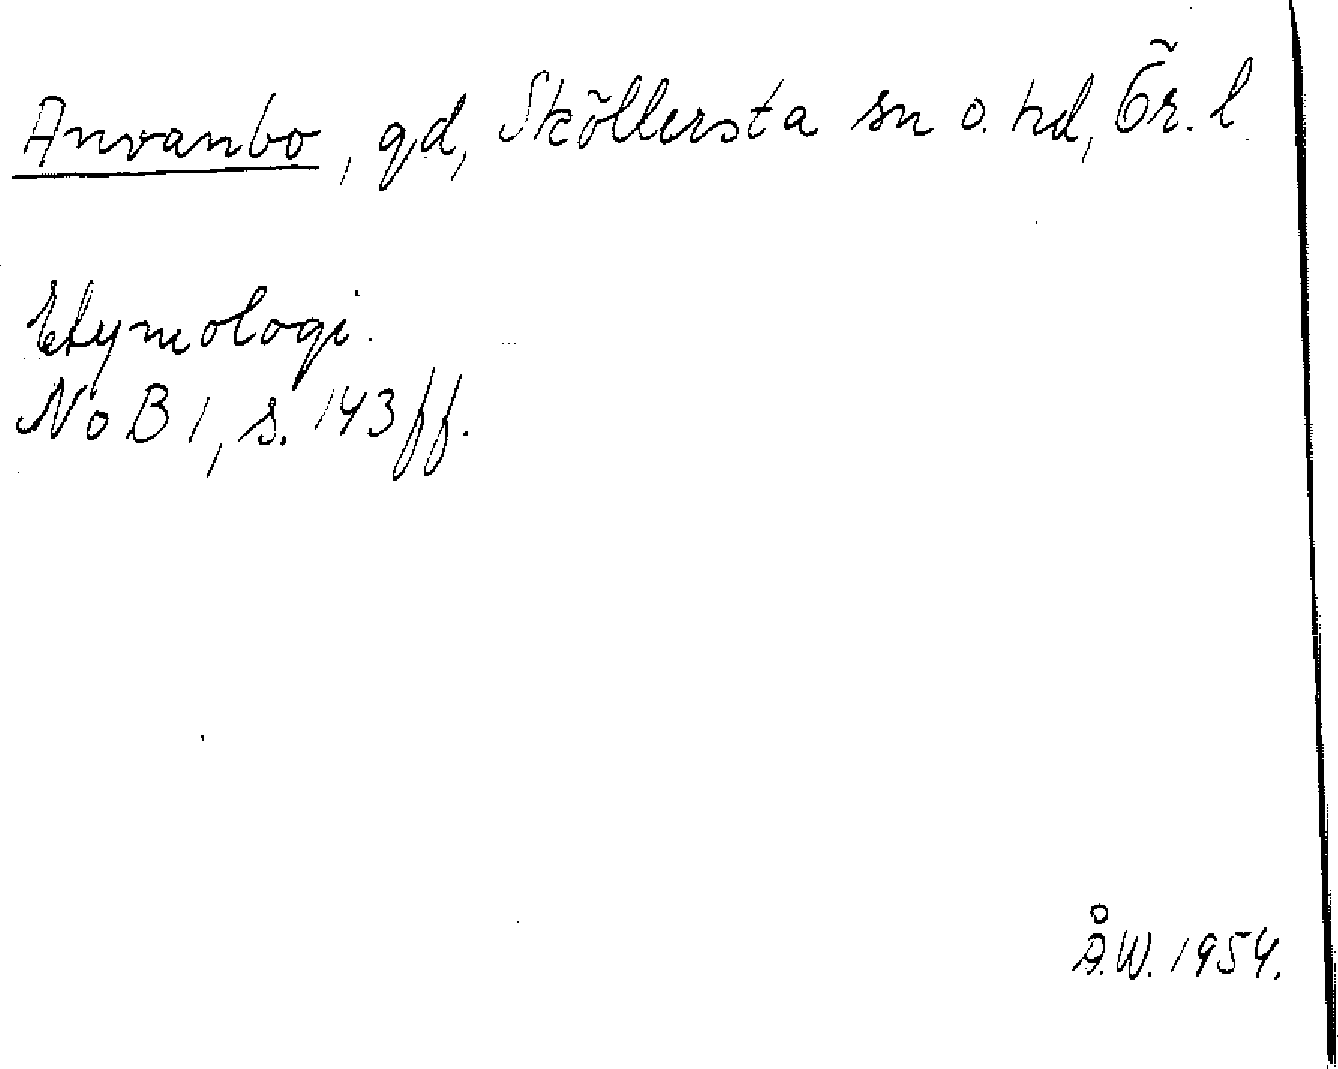 Anvanbo, gd, Sköllersta sn o. hd, Ör. l.
Etymologi.
NoB 1, s. 143 ff.
Å.W. 1954.